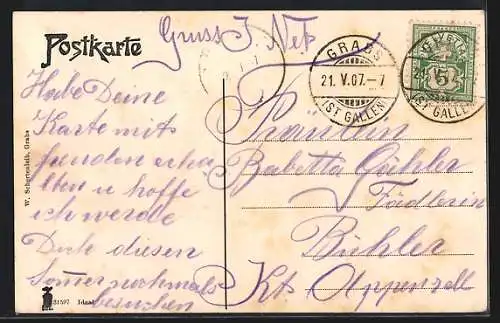 Postkarte
Gruss J. Nef
GRABS
21. V. 07. – 7
(ST. GALLEN)
GRABS
5
ST. GALLEN
Habe Deine
Karte mit
freuden erha
lten u hoffe
ich werde
Dich diesen
Somer nochmals
besuchen
Fräulein
Babetta Gähler
Fädlerin
Bühler
Kt. Appenzell
31597 Ideal